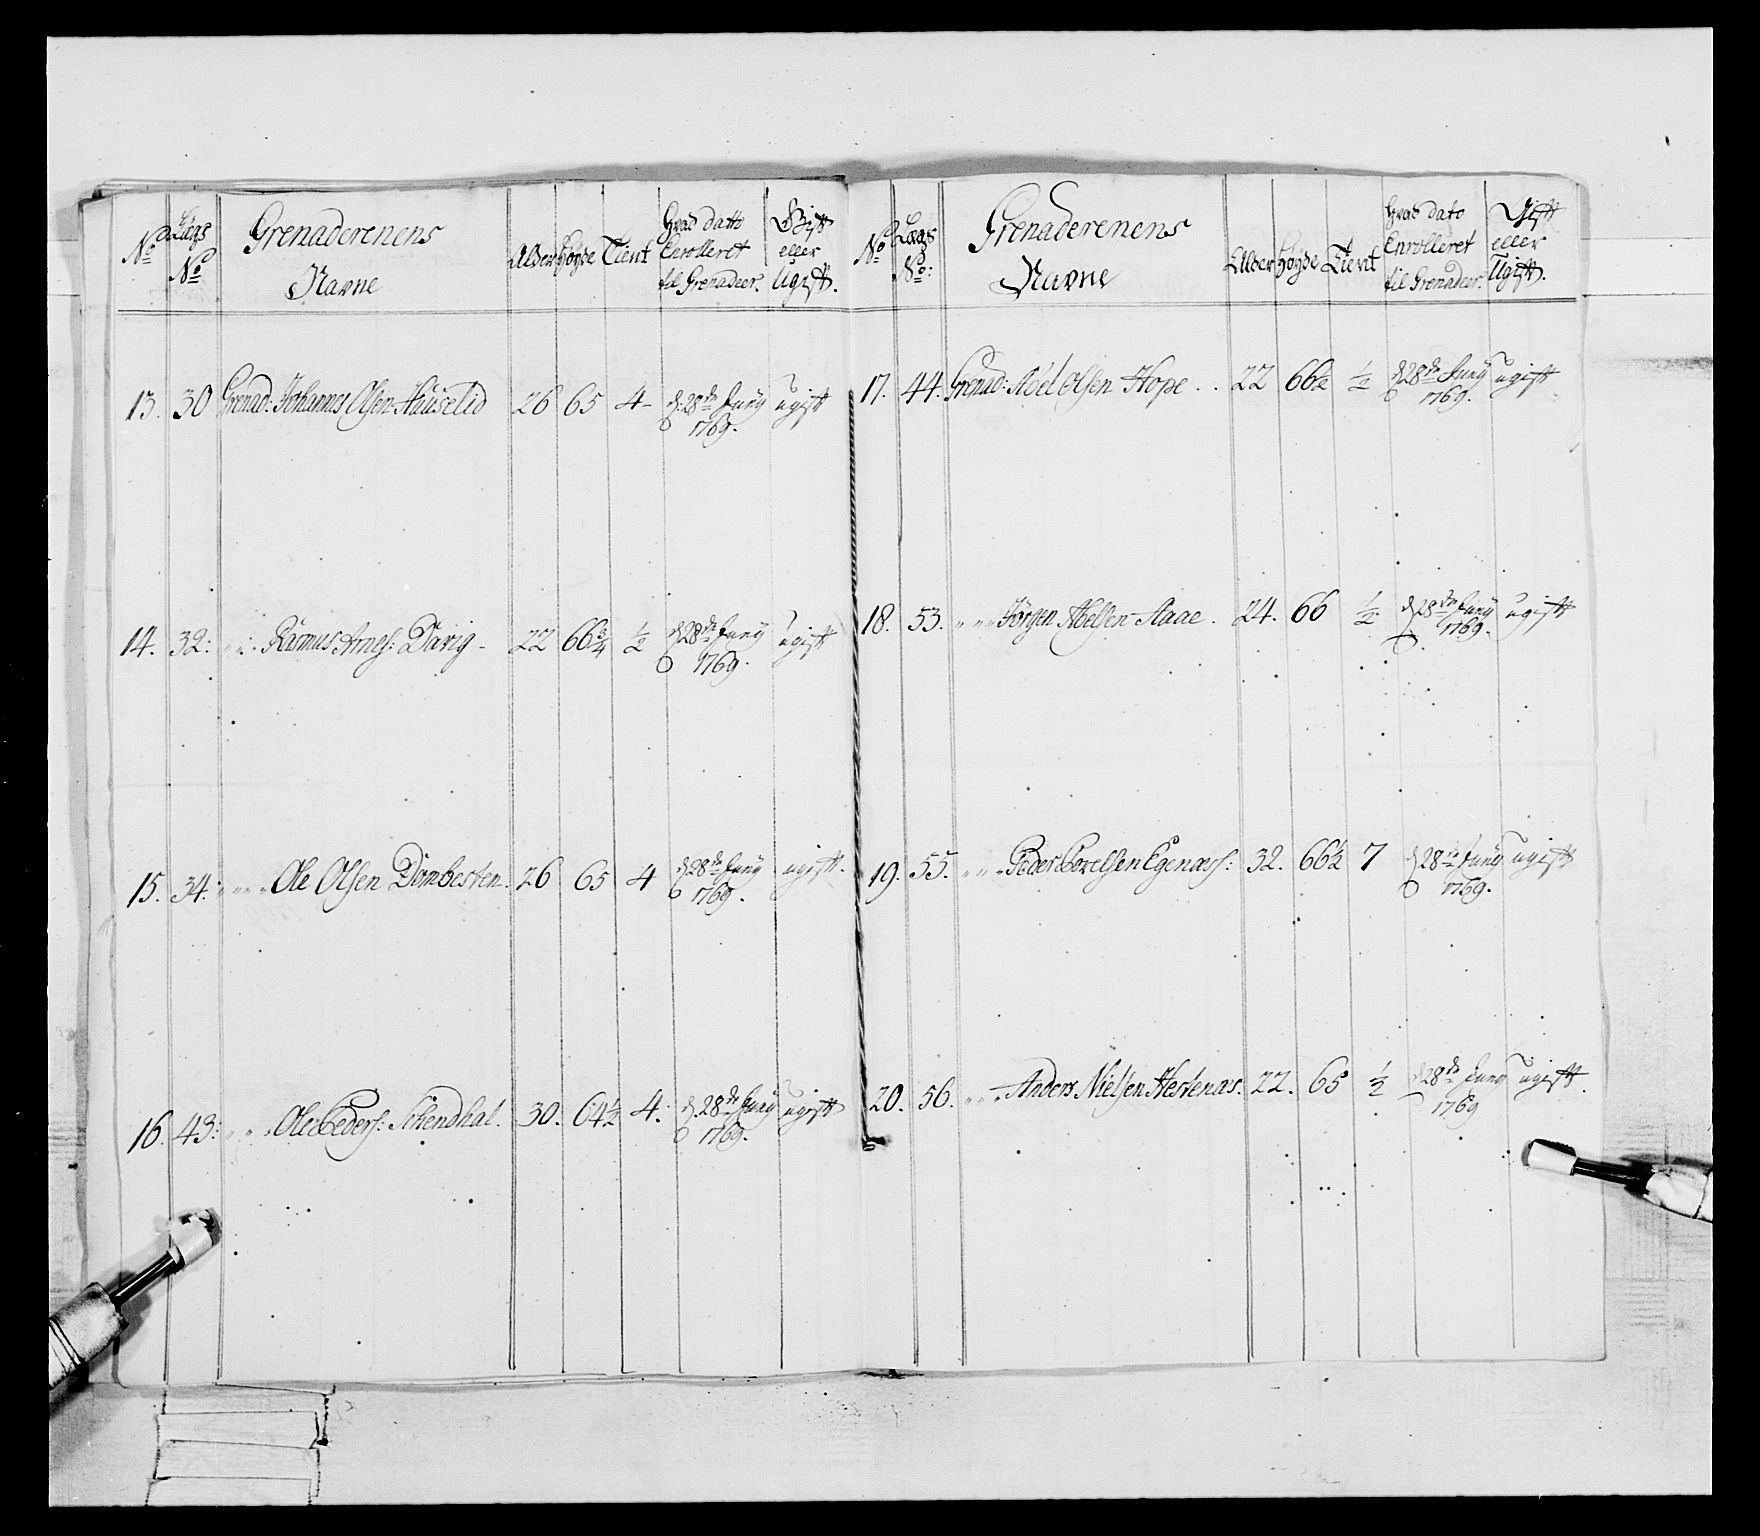 No Lægs No Grenaderenens Navne Alder Høyde Tient Hvad datto Enrolleret til Grenadeer. Gift eller Ugift.
13. 30 Grenad: Johannes Olsen Huuselid 26 65 4 - d: 28de Juny 1769. ugift
14. 32: " " Rasmus Arnes: Davig - 22 66¾ ½ d 28de Juny 1769. ugift
15. 34: " " " Ole Olsen Dombesten. 26 65 4 d 28de Juny 1769. ugift.
16. 43: " " " Ole Peders: Schendhal. 30. 64½ 4. d. 28de Juny 1769. ugift
No Lægs No: Grenaderenens Navne Alder Høyde Tient Hvad dato Enrolleret til Grenadeer. Gift eller Ugift.
17. 44. Grenad: Abel Olsen Hope . . 22 66½ ½ d 28de Juny 1769. ugift
18. 53. " " " Jørgen Abelsen Aaae. 24. 66 ½ d 28de Juny 1769. ugift
19. 55. " " " Peder Povelsen Egenæss: 32. 66½ 7 d 28de Juny 1769. ugift
20. 56. " " " Anders Nielsen Hestenæs. 22. 65 ½ d 28de Juny 1769 ugift.